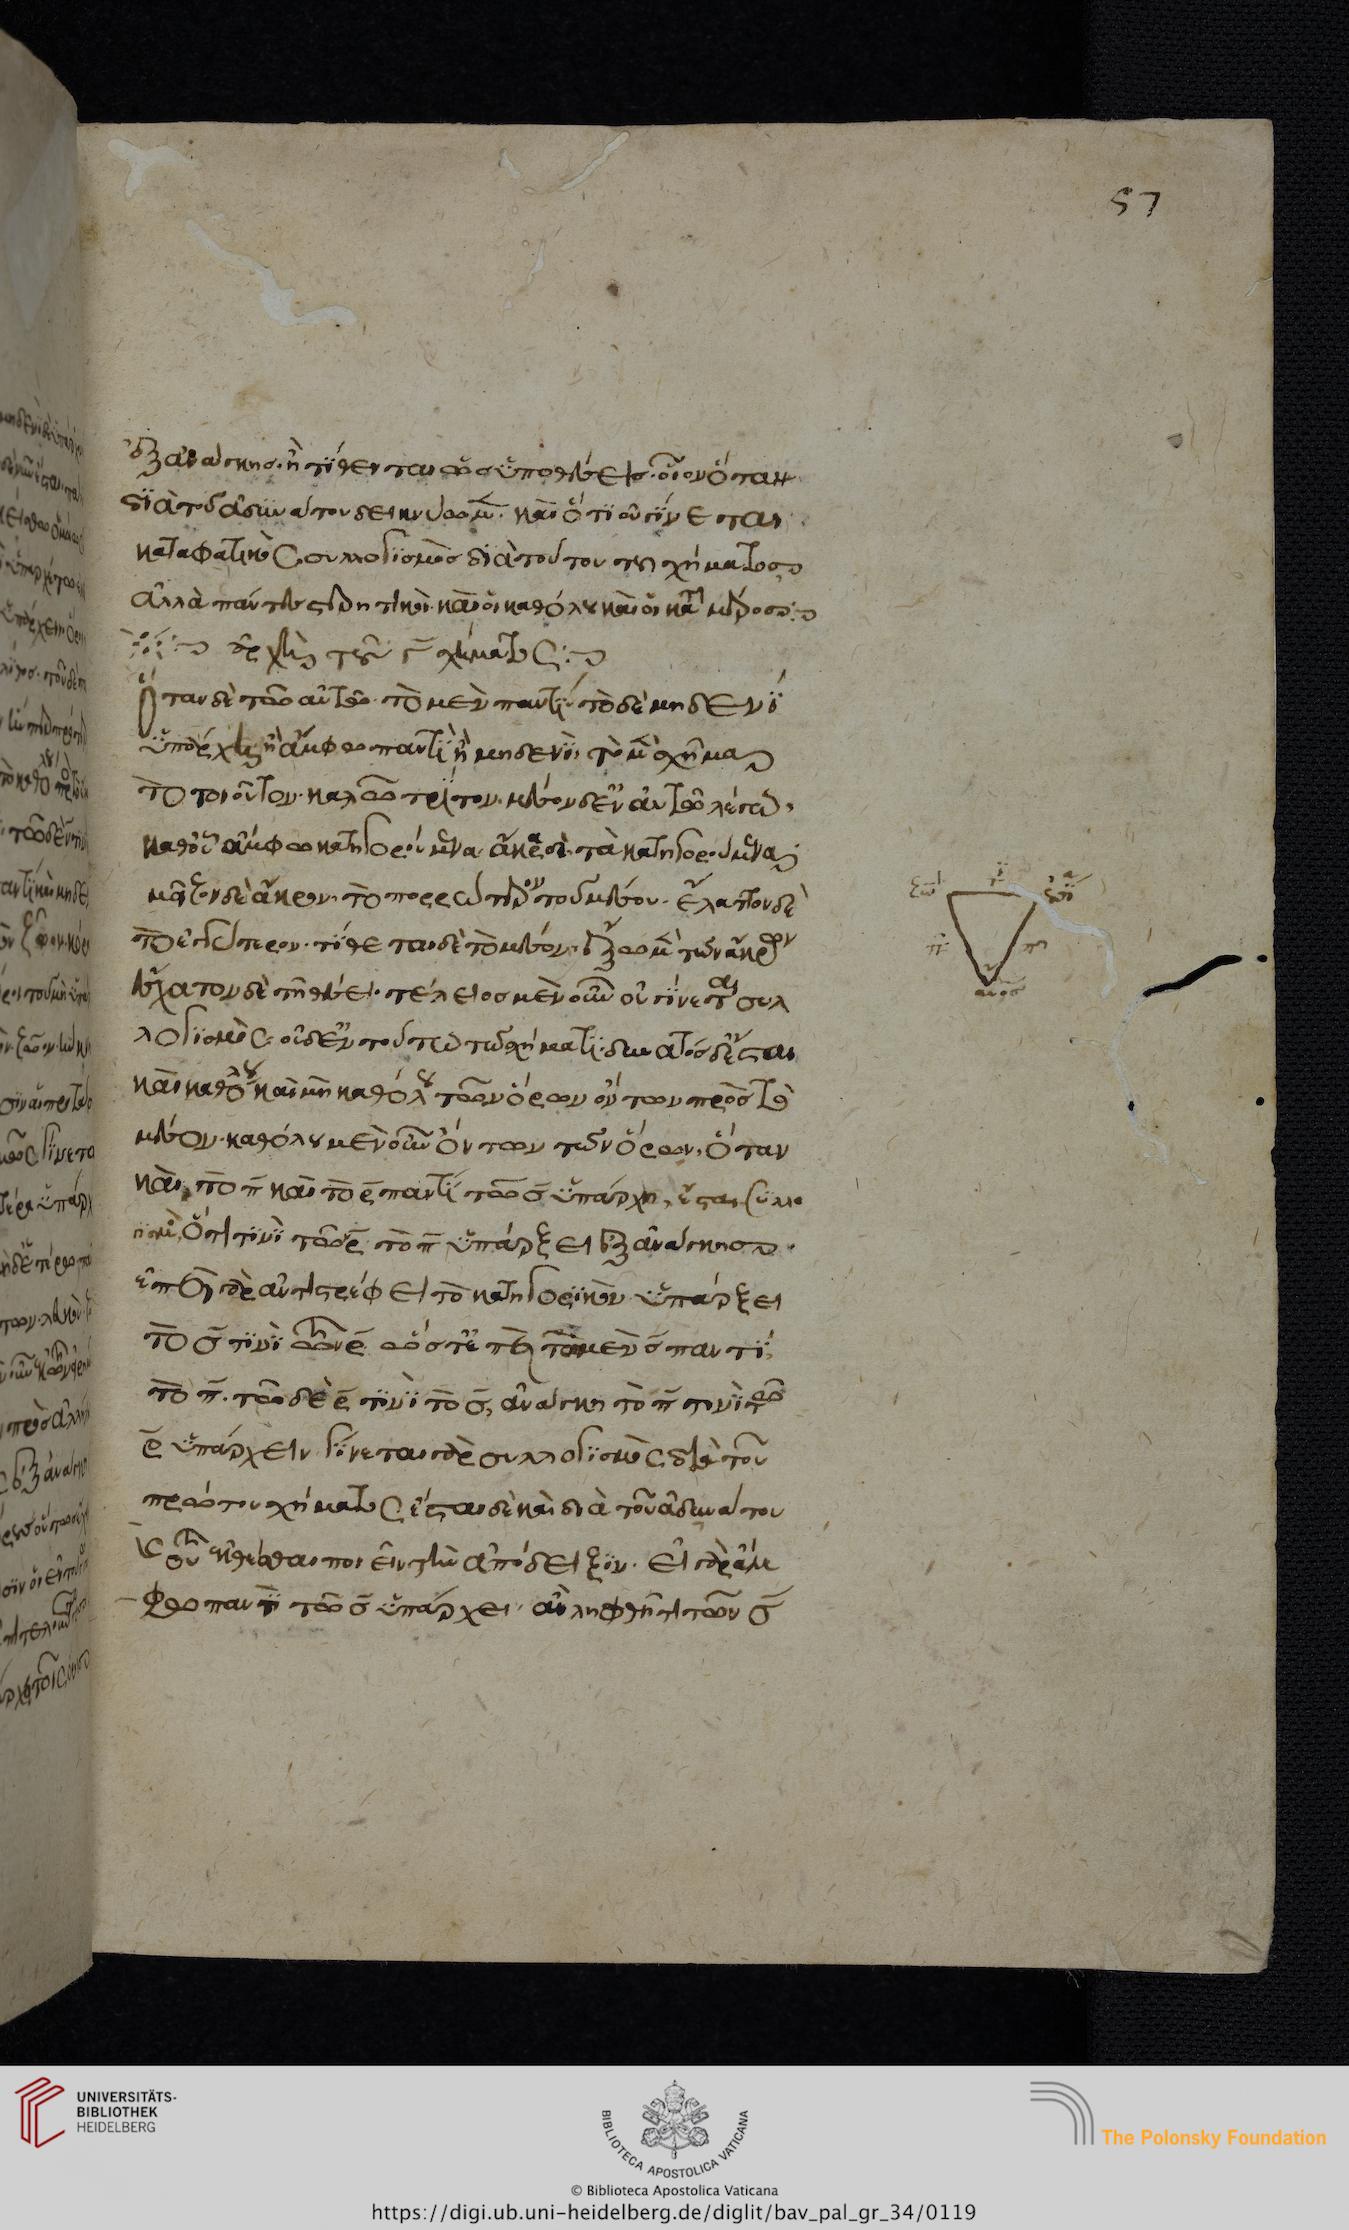 57
ἐξ ἀνάγκης. ἢ τίθενται ὡς ὑποθέσεις. οἷον ὅταν
διὰ τοῦ ἀδυνάτου δεικνύωμεν. καὶ ὅτι οὐ γίνεται
καταφατικὸς συλλογισμὸς διὰ τούτου τοῦ σχήματος
ἀλλὰ πάντες στερητικοὶ. καὶ οἱ καθόλου καὶ οἱ κατὰ μέρος
ἀρχὴ τοῦ γ̄ σχήματος
Ὅταν δὲ τῶ αὐτῶ. τὸ μὲν παντὶ. τὸ δὲ μηδενὶ
ὑπάρχη ἢ ἄμφω παντὶ ἢ μηδενὶ, τὸ μὲν σχῆμα
τὸ τοιοῦτον. καλῶ τρίτον. μέσον δ' ἐν αὐτῶ λέγω.
καθ' οὗ ἄμφω κατηγορούμενα. ἄκρα δὲ. τὰ κατηγορούμενα
μεῖζον δὲ ἄκρον. τὸ πορρώτερον τοῦ μέσου. ἔλαττον δὲ
τὸ ἐγγύτερον. τίθεται δὲ τὸ μέσον. ἔξω μὲν τῶν ἄκρων
ἔσχατον δὲ τῆ θέσει. τέλειος μὲν οὖν οὐ γίνεται συλ
λογισμὸς. οὐδ' ἐν τούτω τῶ σχήματι. δυνατὸς δ' ἔσται
καὶ καθόλου καὶ μὴ καθόλου τῶν ὅρων ὄντων πρὸς τὸ
μέσον. καθόλου μὲν οὖν ὄντων τῶν ὅρων, ὅταν
καὶ τὸ π̄ καὶ τὸ ρ̄ παντὶ τῶ σ̄ ὑπάρχη, ἔσται συλλο
γισμὸς, ὅτι τινὶ τῶ ρ̄ τὸ π̄ ὑπάρξει ἐξ ἀνάγκης.
ἐπεὶ γὰρ ἀντιστρέφει τὸ κατηγορικὸν. ὑπάρξει
τὸ σ̄ τινὶ τῶν ρ̄ ὥστ' ἐπεὶ τῶ μὲν σ̄ παντὶ,
τὸ π̄. τῶ δὲ ρ̄ τινὶ τὸ σ̄, ἀνάγκη τὸ π̄ τινὶ τῶ
ρ̄ ὑπάρχειν. γίνεται γὰρ συλλογισμὸς διὰ τοῦ
πρώτου σχήματος. ἔσται δὲ καὶ διὰ τοῦ ἀδυνάτου
ἐκθέσθαι ποιεῖν τὴν ἀπόδειξιν. εἰ γὰρ ἄμ
φω παντὶ τῶ σ̄ ὑπάρχει. ἂν ληφθῆ τι τῶν σ̄
UNIVERSITÄTS-
BIBLIOTHEK
HEIDELBERG
BIBLIOTECA APOSTOLICA VATICANA
The Polonsky Foundation
© Biblioteca Apostolica Vaticana
https://digi.ub.uni-heidelberg.de/diglit/bav_pal_gr_34/0119